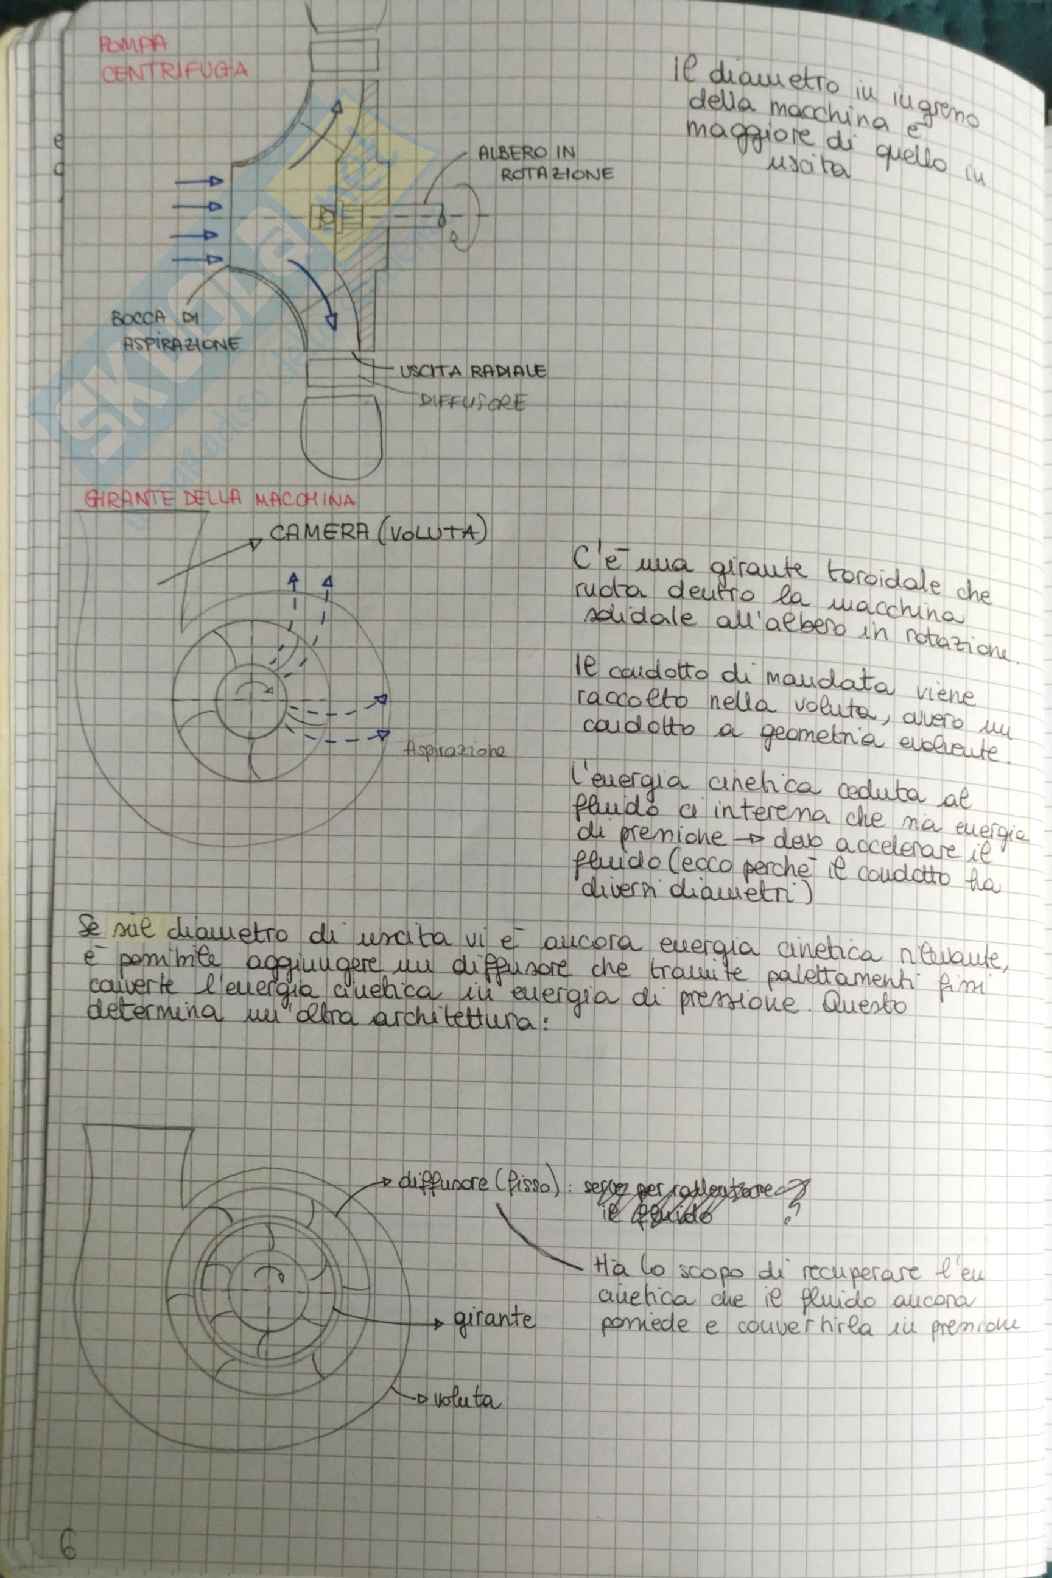 POMPA
CENTRIFUGA
Il diametro in ingresso
della macchina è
maggiore di quello in
uscita
ALBERO IN
ROTAZIONE
BOCCA DI
ASPIRAZIONE
USCITA RADIALE
DIFFUSORE
SKUOLA
.net
GIRANTE DELLA MACCHINA
CAMERA (VOLUTA)
C'è una girante toroidale che
ruota dentro la macchina
solidale all'albero in rotazione.
Il condotto di mandata viene
raccolto nella voluta, ovvero un
condotto a geometria evolvente.
Aspirazione
L'energia cinetica ceduta al
fluido ci interessa che sia energia
di pressione → devo accelerare il
fluido (ecco perchè il condotto ha
diversi diametri)
Se sul diametro di uscita vi è ancora energia cinetica rilevante,
è possibile aggiungere un diffusore che tramite palettamenti fissi
converte l'energia cinetica in energia di pressione. Questo
determina un'altra architettura:
diffusore (fisso): serve per rallentare
il fluido ?
Ha lo scopo di recuperare l'en
cinetica che il fluido ancora
possiede e convertirla in pressione
girante
voluta
6